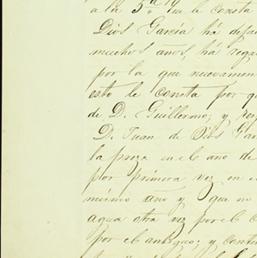 a la 5ª que le consta
Dios Garcia há deja
muchos años, há regu
por la que nuevamen
esto le consta por q
de D. Guillermo; y
D. Juan de Dios Gar
la presa en el año de
por primera vez en e
mismo año y que n
agua otra vez por el c
por el antiguo; y cont